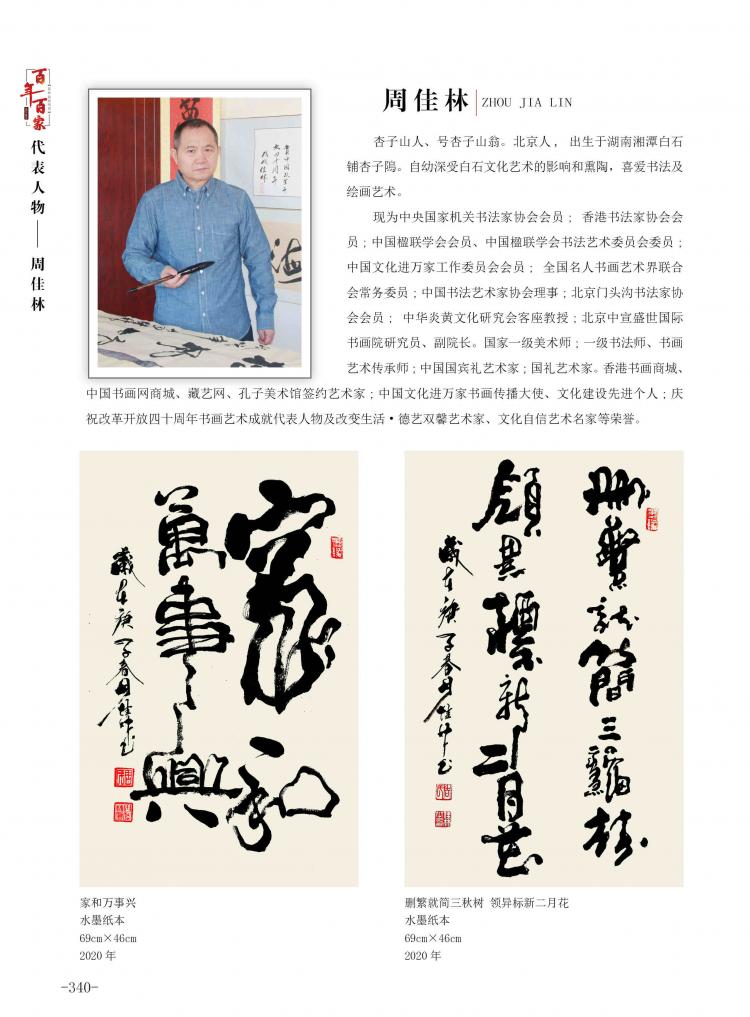 百年百家
代表人物——周佳林
周佳林 ZHOU JIA LIN
杏子山人、号杏子山翁。北京人， 出生于湖南湘潭白石
铺杏子隖。自幼深受白石文化艺术的影响和熏陶，喜爱书法及
绘画艺术。
现为中央国家机关书法家协会会员； 香港书法家协会会
员；中国楹联学会会员、中国楹联学会书法艺术委员会委员；
中国文化进万家工作委员会会员； 全国名人书画艺术界联合
会常务委员；中国书法艺术家协会理事；北京门头沟书法家协
会会员； 中华炎黄文化研究会客座教授；北京中宣盛世国际
书画院研究员、副院长。国家一级美术师；一级书法师、书画
艺术传承师；中国国宾礼艺术家；国礼艺术家。香港书画商城、
中国书画网商城、藏艺网、孔子美术馆签约艺术家；中国文化进万家书画传播大使、文化建设先进个人；庆
祝改革开放四十周年书画艺术成就代表人物及改变生活·德艺双馨艺术家、文化自信艺术名家等荣誉。
家和
萬事興
歲在庚子春月佳林书
删繁就简三秋樹
領異標新二月花
歲在庚子春月佳林书
家和万事兴
水墨纸本
69cm×46cm
2020 年
删繁就简三秋树 领异标新二月花
水墨纸本
69cm×46cm
2020 年
-340-